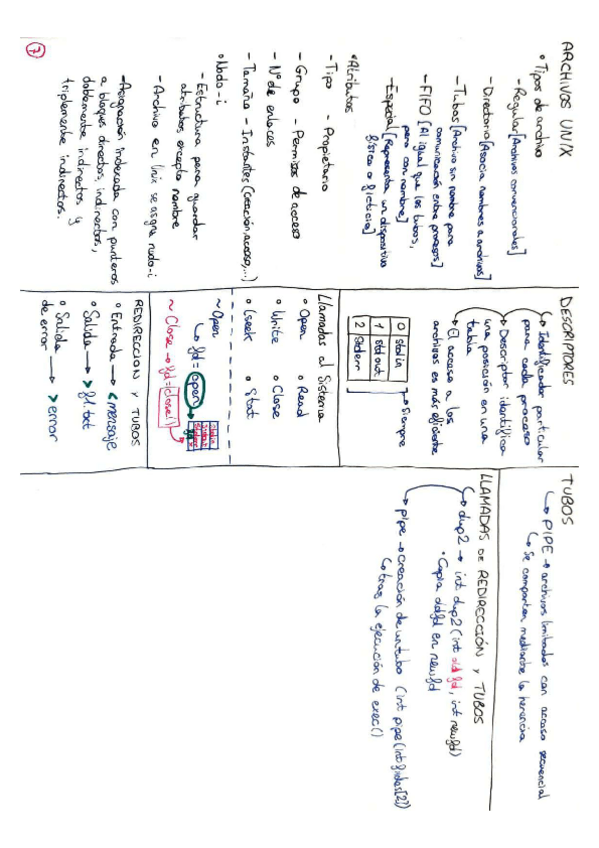 ARCHIVOS UNIX
• Tipos de archivo
- Regular [Archivos convencionales]
- Directorio [Asocia nombres a archivos]
- Tubos [Archivo sin nombre para
comunicación entre procesos]
- FIFO [Al igual que los tubos,
pero con nombre]
- Especial [Representa un dispositivo
físico o ficticio]
• Atributos
- Tipo - Propietario
- Grupo - Permisos de acceso
- Nº de enlaces
- Tamaño - Instantes (creación, acceso,...)
• Nodo-i
- Estructura para guardar
atributos excepto nombre
- Archivo en Unix se asigna nodo-i
- Asignación indexada con punteros
a bloques directos, indirectos,
doblemente indirectos y
triplemente indirectos.
7
DESCRIPTORES
↳ Identificador particular
para cada proceso
↳ Descriptor identifica
una posición en una
tabla
↳ El acceso a los
archivos es más eficiente
0 stdin
1 stdout
2 stderr
→ Siempre
Llamadas al Sistema
• Open • Read
• Write • Close
• lseek • Stat
~ Open
↳ fd = open
~ Close → fd = close()
REDIRECCION Y TUBOS
• Entrada → < mensaje
• Salida → > f1.txt
• Salida de error → > error
TUBOS
↳ PIPE → archivos limitados con acceso secuencial
↳ Se comparten mediante la herencia
LLAMADAS DE REDIRECCIÓN Y TUBOS
↳ dup2 → int dup2 (int oldfd, int newfd)
• Copia oldfd en newfd
↳ pipe → creación de un tubo (int pipe (int fildes[2])
↳ tras la ejecución de exec()